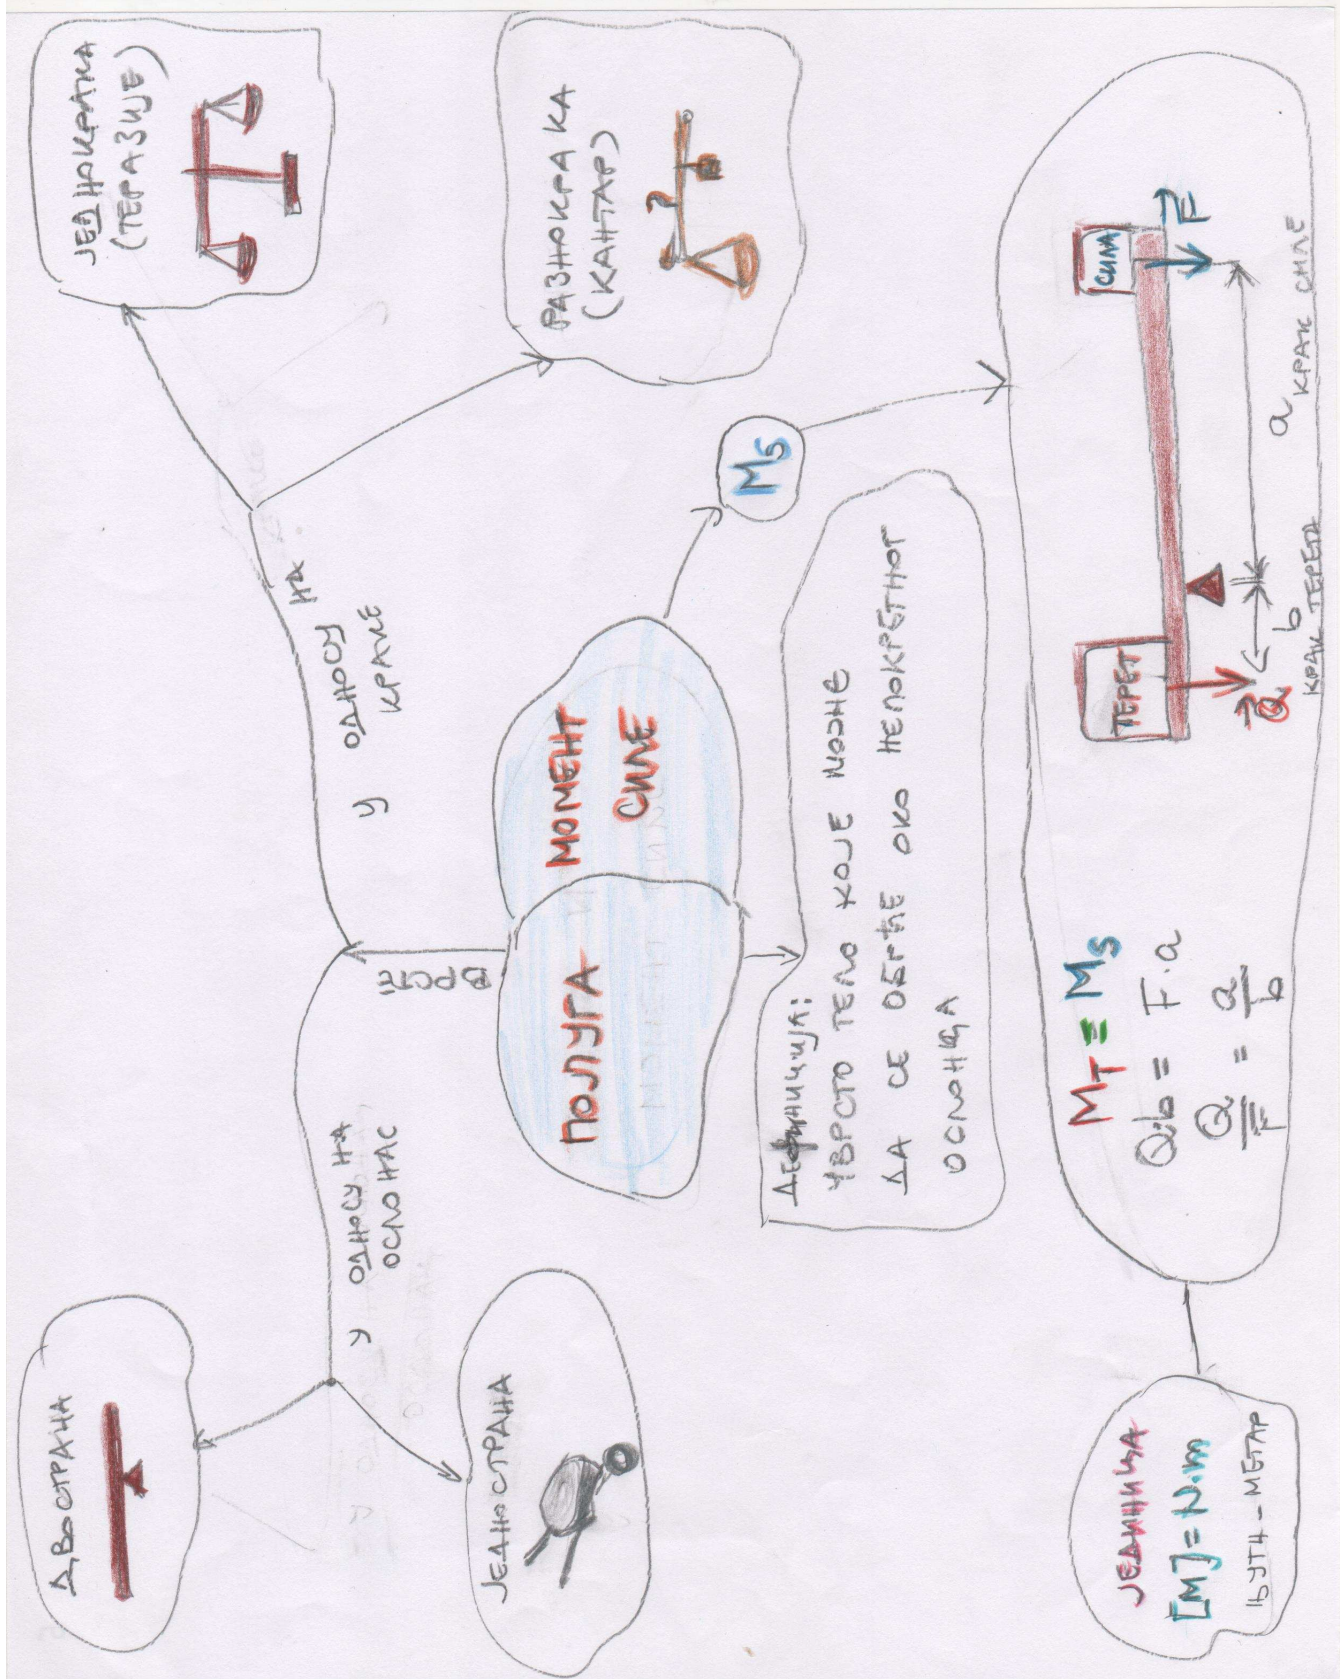 ПОЛУГА И МОМЕНТ
СИЛЕ
ВРСТЕ
У ОДНОСУ НА
ОСЛОНАС
ДВОСТРАНА
ЈЕДНОСТРАНА
У ОДНОСУ НА
КРАКЕ
ЈЕДНОКРАКА
(ТЕРАЗИЈЕ)
РАЗНОКРАКА
(КАНТАР)
ДЕФИНИЦИЈА:
ЧВРСТО ТЕЛО КОЈЕ МОЖЕ
ДА СЕ ОБРЋЕ ОКО НЕПОКРЕТНОГ
ОСЛОНЦА
Ms
MT = Ms
Q·b = F·a
Q/F = a/b
ТЕРЕТ
СИЛА
Q
F
b
a
КРАК ТЕРЕТА
КРАК СИЛЕ
ЈЕДИНИЦА
[M]=N·m
ЊУТН-МЕТАР